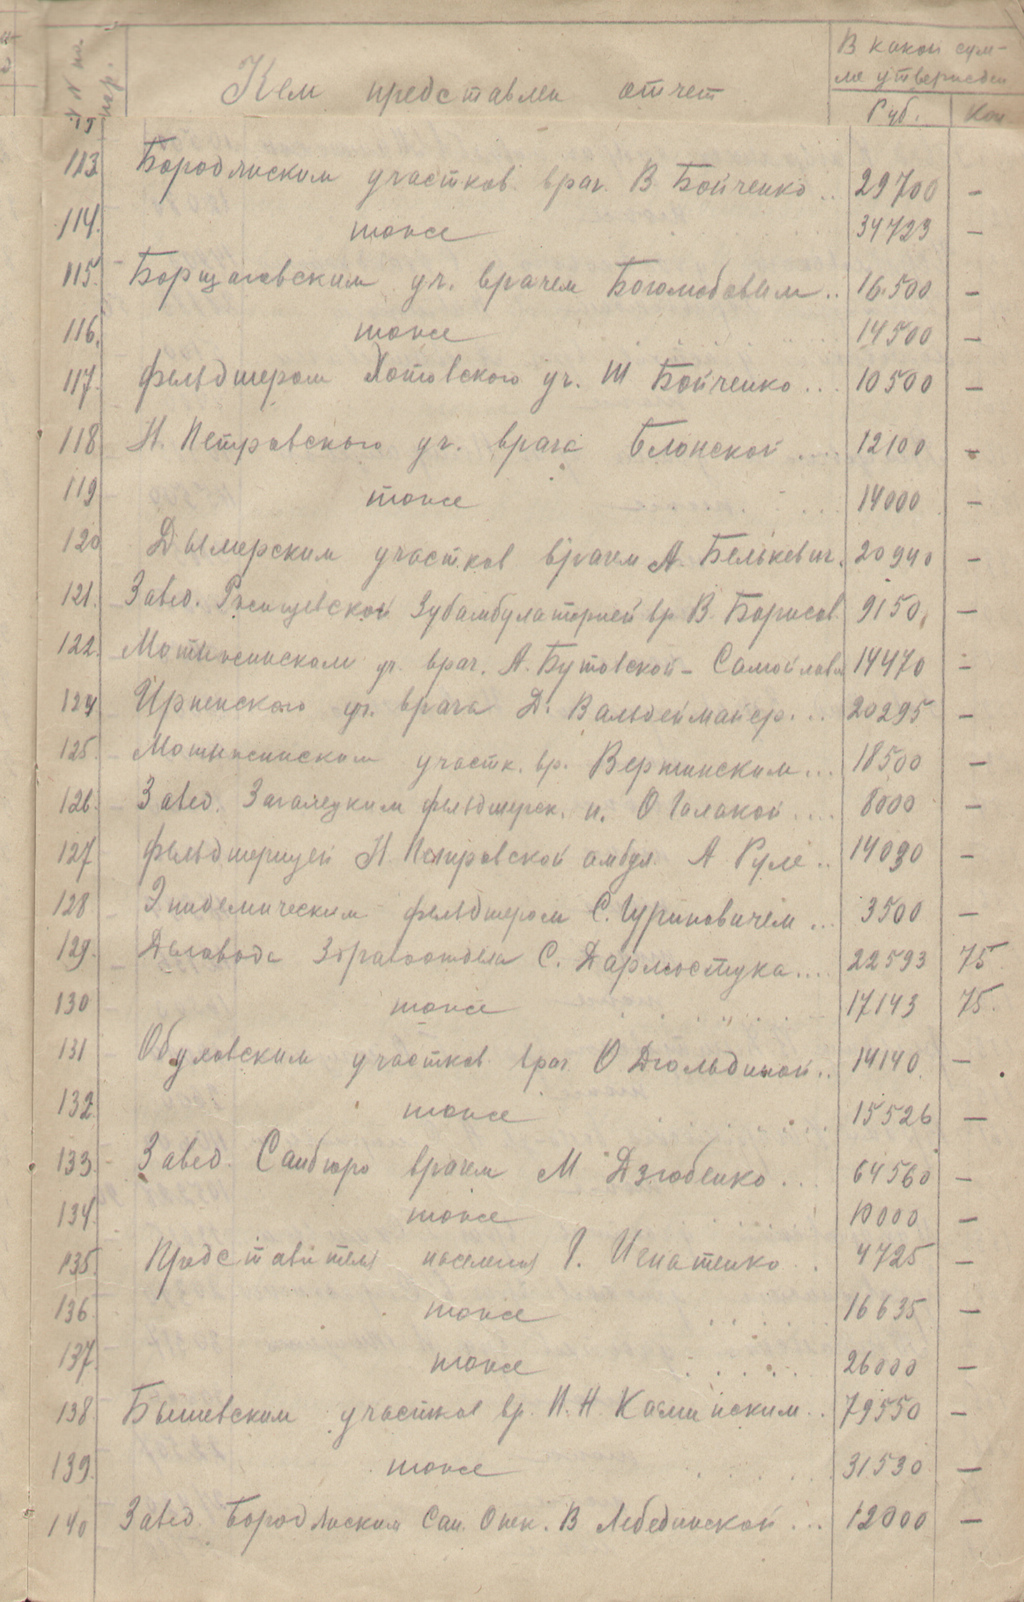 №№ по пор.
Кем представлен отчет
В какой сум-
ме утвержден
Руб. Коп
113 Бородянским участков. врач. В. Бойченко .. 29700 —
114. тоже 34723 —
115. Борщаговским уч. врачем Боголюбовым .. 16500 —
116. тоже 14500 —
117. Фельдшером Хотовского уч. Ш Бойченко ... 10500 —
118 Н. Петровского уч. врача Блонской .... 12100 —
119 тоже 14000 —
120 Дымерским участков врачем А. Белькевич. 20940 —
121. Завед. Зубамбулаторией вр В. Борисов 9150, —
122. Мотыжинским уч. врач. А. Бутовской - Самойлова 14470 —
124 Ирпенского уч. врача Д. Вальдеймайер. ... 20295 —
125. Мотыжинским участк. вр. Вертинским ... 18500 —
126. Завед. Загалецким фельдшерск. п. О Галакой .... 8000 —
127 Фельдшерицей Н Петровской амбул. А Руле .. 14090 —
128 Эпидемическим фельдшером С. Гуриновичем ... 3500 —
129. Деловода Здравотдела С. Дармостука ... 22593 75
130 тоже 17143 75.
131 Обуховским участков врач О Дгольдиной .. 14140 —
132 тоже 15526 —
133 Завед. Санбюро врачем М Дзюбенко ... 64560 —
134. тоже 10000 —
135 Представителя населения Г. Игнатенко . 4725 —
136 тоже 16635 —
137 тоже 26000 —
138 Бышевским участков вр. П. Н. Каминским .. 79550 —
139 тоже 31530 —
140 Завед Бородянским Сан. Отн. В Лебединской ... 12000 —